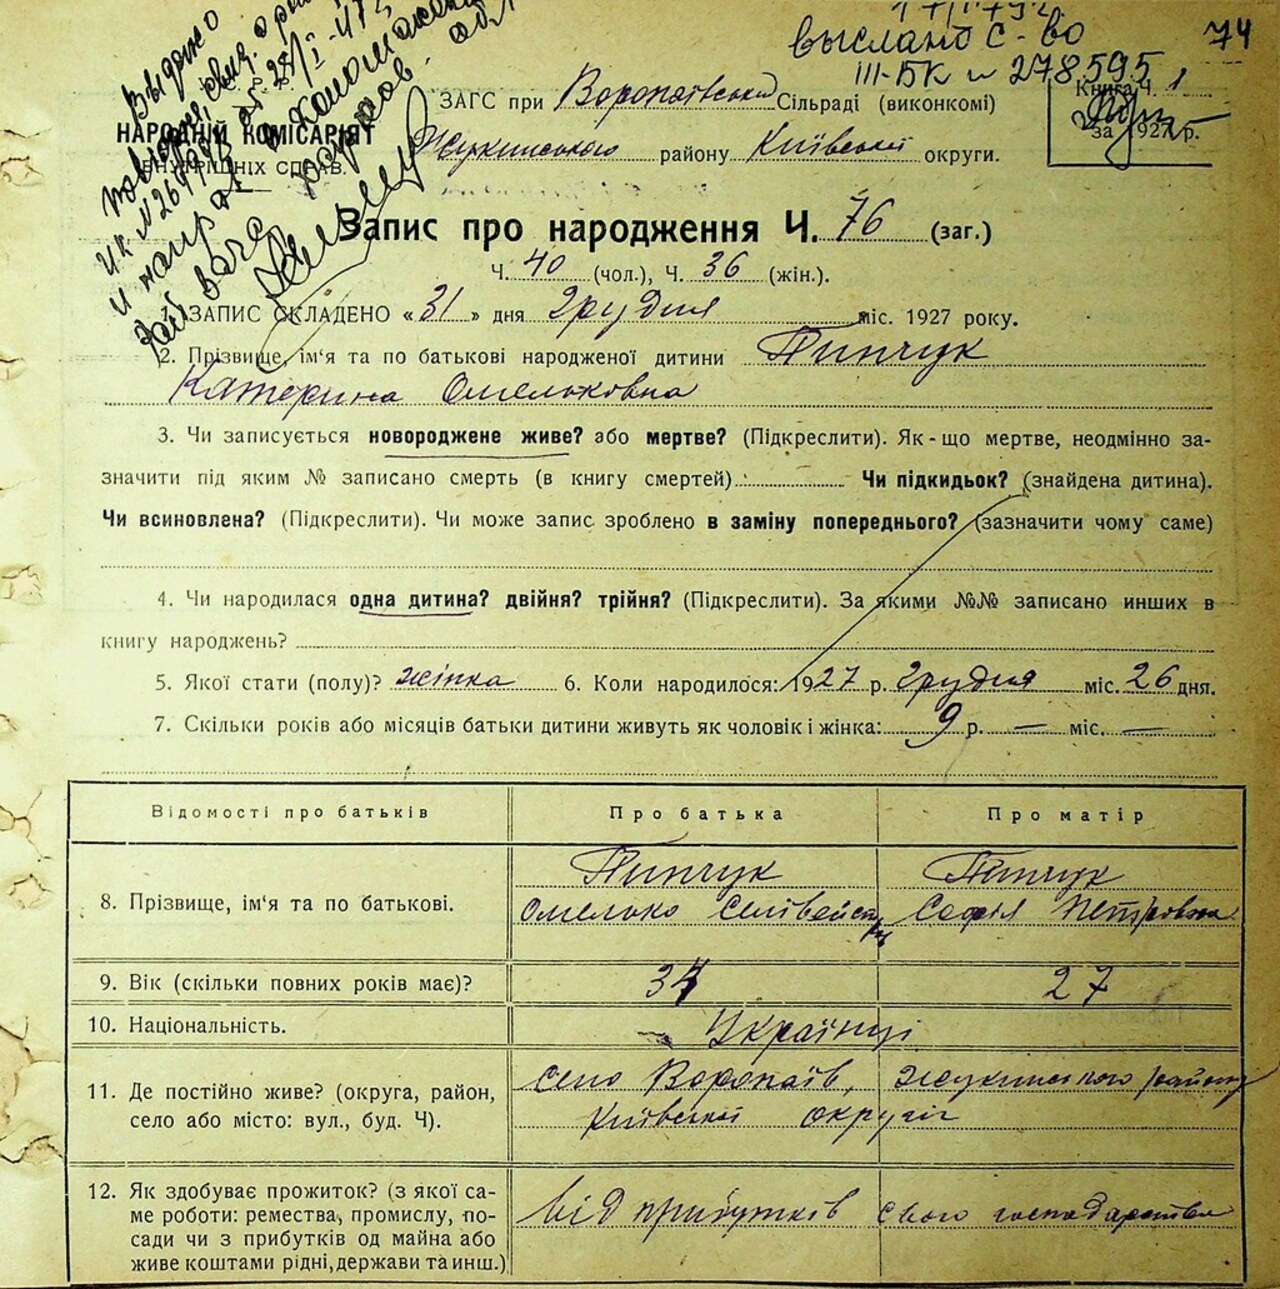 74
выслано с-во
III-БК № 278595
Видано
Книга Ч. 1
за 1927 р.
НАРОДНІЙ КОМІСАРІЯТ
ВНУТРІШНІХ СПРАВ.
ЗАГС при Воропаївській Сільраді (виконкомі)
Жукинського району Київської округи.
Запис про народження Ч. 76 (заг.)
Ч. 40 (чол.), Ч. 36 (жін.).
1. ЗАПИС СКЛАДЕНО « 31 » дня Грудня міс. 1927 року.
2. Прізвище, ім'я та по батькові народженої дитини Пинчук
Катерина Омельковна
3. Чи записується новороджене живе? або мертве? (Підкреслити). Як-що мертве, неодмінно за-
значити під яким № записано смерть (в книгу смертей) Чи підкидьок? (знайдена дитина).
Чи всиновлена? (Підкреслити). Чи може запис зроблено в заміну попереднього? (зазначити чому саме)
4. Чи народилася одна дитина? двійня? трійня? (Підкреслити). За якими №№ записано инших в
книгу народжень?
5. Якої стати (полу)? жінка 6. Коли народилося: 1927 р. Грудня міс. 26 дня.
7. Скільки років або місяців батьки дитини живуть як чоловік і жінка: 9 р. — міс. —
Відомості про батьків Про батька Про матір
8. Прізвище, ім'я та по батькові.
Пинчук
Омелько
Пинчук
Софія Петровна
9. Вік (скільки повних років має)? 34 27
10. Національність. Українці
11. Де постійно живе? (округа, район,
село або місто: вул., буд. Ч).
село Воропаїв, Жукинського району
Київської округи
12. Як здобуває прожиток? (з якої са-
ме роботи: ремества, промислу, по-
сади чи з прибутків од майна або
живе коштами рідні, держави та инш.)
від прибутків свого господарства